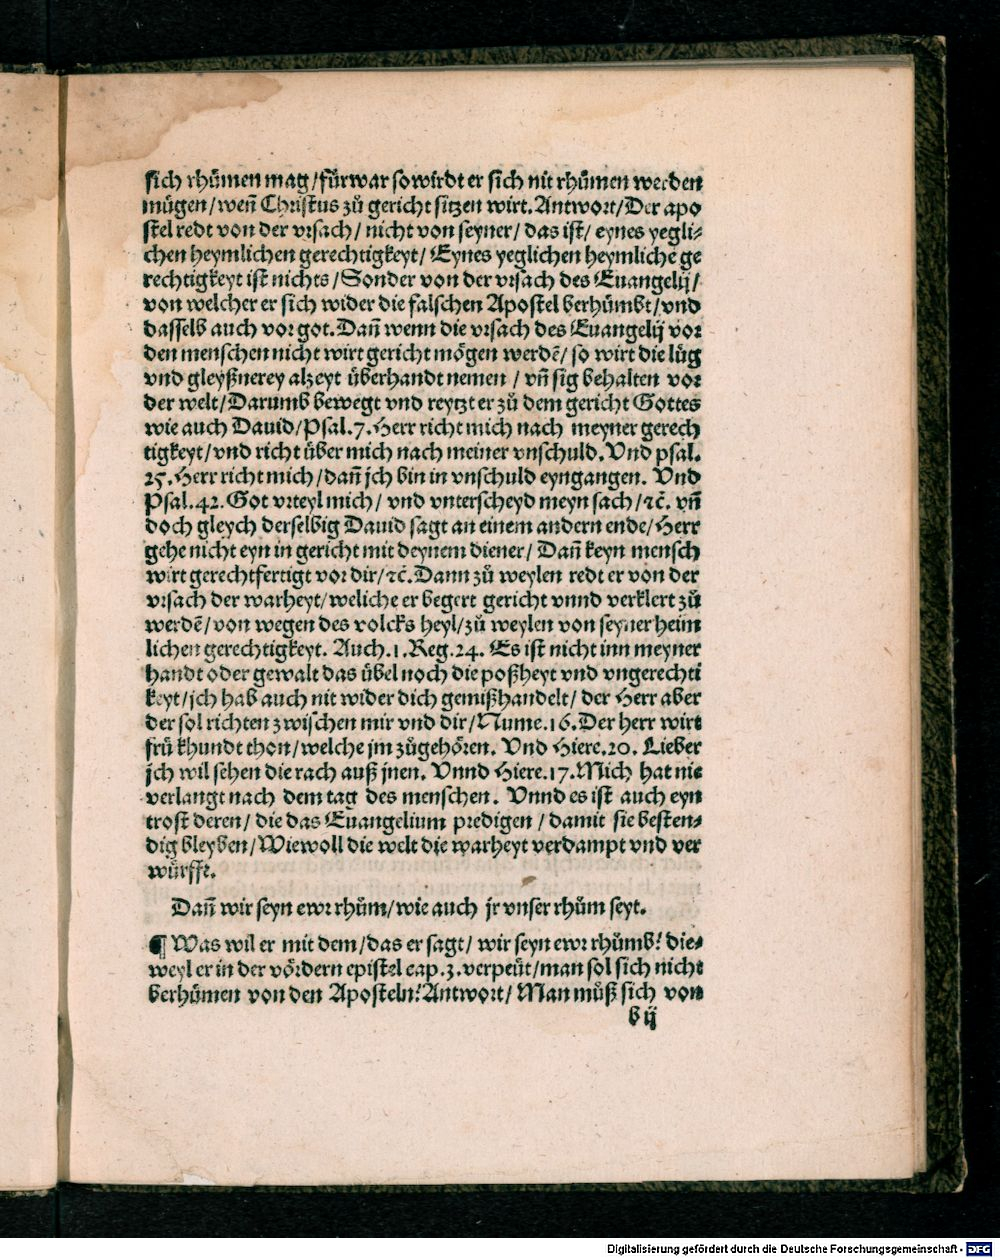 sich rhuͤmen mag/fuͤrwar so wirdt er sich nit rhuͤmen werden
muͤgen/ weñ Christus zuͦ gericht sitzen wirt. Antwort/Der apo
stel redt von der vrsach/ nicht von seyner/ das ist/ eynes yegli⸗
chen heymlichen gerechtigkeyt/ Eynes yeglichen heymliche ge
rechtigkeyt ist nichts/ Sonder von der vrsach des Euangelij/
von welcher er sich wider die falschen Apostel berhuͤmbt/ vnd
dasselb auch vor got. Dañ wenn die vrsach des Euangelij vor
den menschen nicht wirt gericht moͤgen werdẽ/ so wirt die luͤg
vnd gleyßnerey alzeyt uͤberhandt nemen / vñ sig behalten vor
der welt/ Darumb bewegt vnd reytzt er zuͦ dem gericht Gottes
wie auch Dauid/ Psal.7. Herr richt mich nach meyner gerech
tigkeyt/ vnd richt uͤber mich nach meiner vnschuld. Vnd psal.
25. Herr richt mich/ dañ jch bin in vnschuld eyngangen. Vnd
Psal.42. Got vrteyl mich/ vnd vnterscheyd meyn sach/ ꝛc̃. vñ
doch gleych derselbig Dauid sagt an einem andern ende/ Herr
gehe nicht eyn in gericht mit deynem diener/ Dañ keyn mensch
wirt gerechtfertigt vor dir/ ꝛc̃. Dann zuͦ weylen redt er von der
vrsach der warheyt/ weliche er begert gericht vnnd verklert zuͦ
werdẽ/ von wegen des volcks heyl/ zuͦ weylen von seyner heim
lichen gerechtigkeyt. Auch.1.Reg.24. Es ist nicht inn meyner
handt oder gewalt das uͤbel noch die poßheyt vnd vngerechti
keyt/ jch hab auch nit wider dich gemißhandelt/ der Herr aber
der sol richten zwischen mir vnd dir/ Nume.16. Der herr wirt
fruͤ khundt thon/ welche jm zuͦgehoͤren. Vnd Hiere.20. Lieber
jch wil sehen die rach auß jnen. Vnnd Hiere.17. Mich hat nie
verlangt nach dem tag des menschen. Vnnd es ist auch eyn
trost deren/ die das Euangelium predigen / damit sie besten⸗
dig bleyben/ Wiewoll die welt die warheyt verdampt vnd ver
wuͤrfft.
Dañ wir seyn ewr rhuͦm/ wie auch jr vnser rhuͦm seyt.
¶ Was wil er mit dem/ das er sagt/ wir seyn ewr rhuͦmb? die⸗
weyl er in der voͤrdern epistel cap.3. verpeuͤt/ man sol sich nicht
berhuͤmen von den Aposteln? Antwort/ Man muͦß sich von
b ij
Digitalisierung gefördert durch die Deutsche Forschungsgemeinschaft - DFG